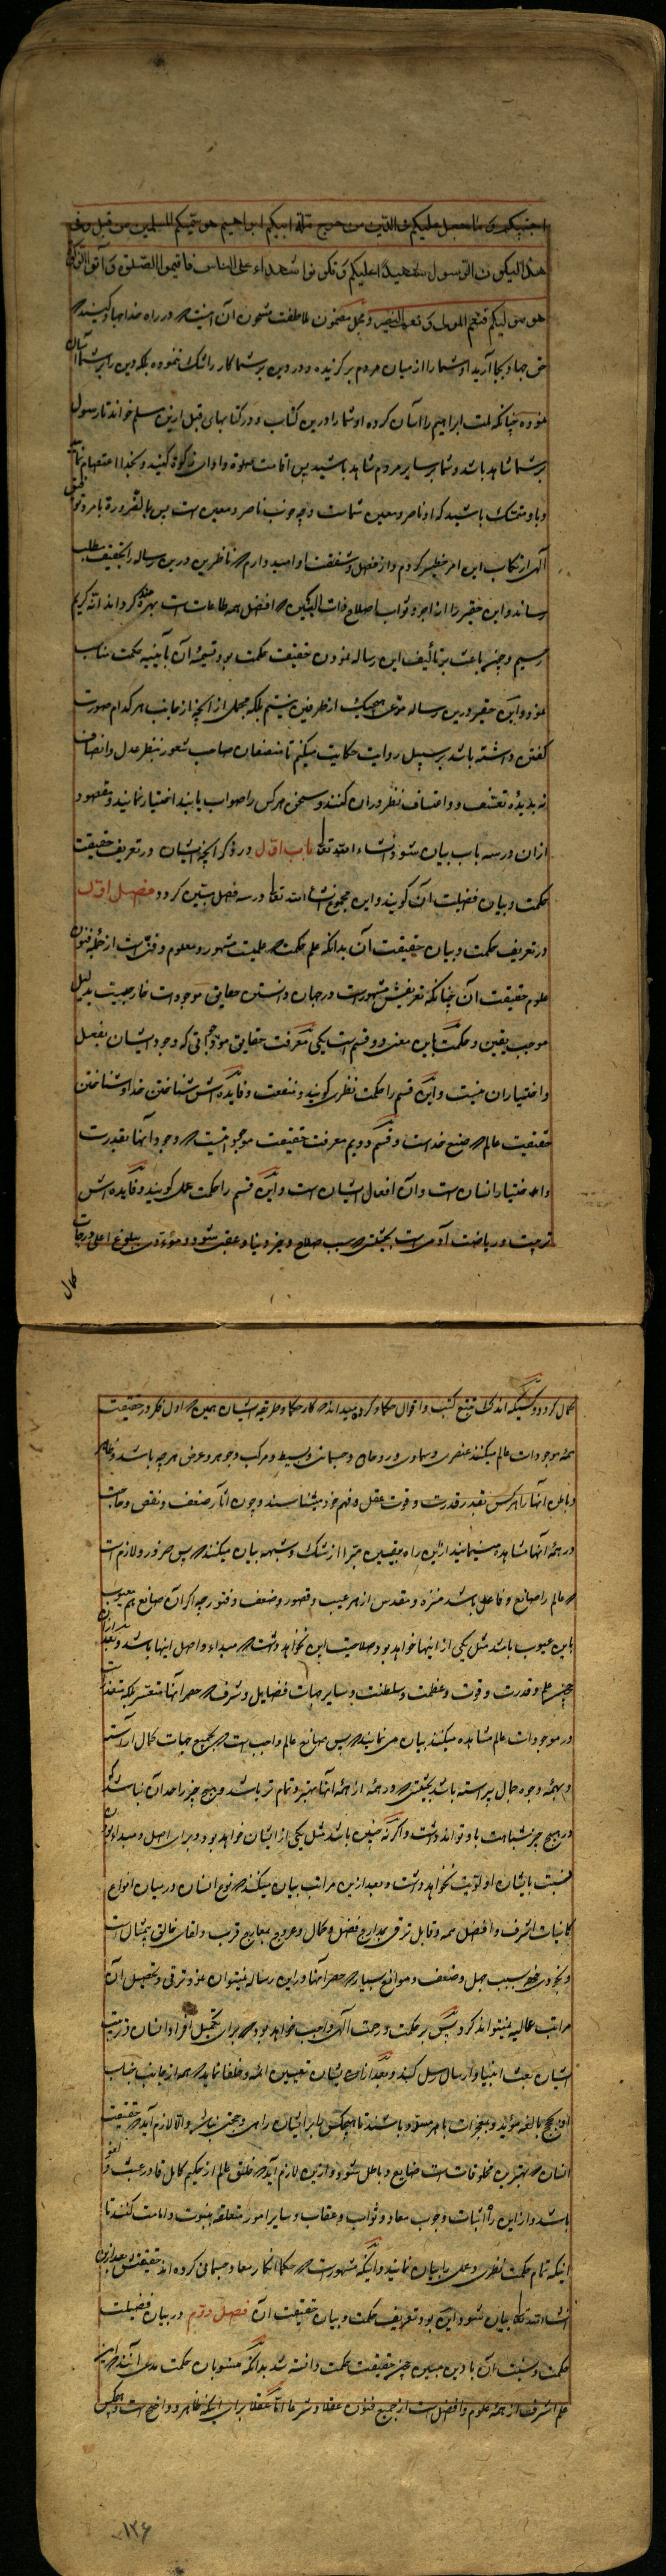 اجتبیکم و ما جعل علیکم فی الدین من حرج ملة ابیکم ابراهیم هو سمیکم المسلمین من قبل و فی
هذا لیکون الرسول شهیدا علیکم و تکونوا شهداء علی الناس فاقیموا الصلوة و آتوا الزکوة
هو مولیکم فنعم المولی و نعم النصیر و مجمل مضمون ملاطفت مشحون آن اینست که در راه خدا جهاد کنید
حق جهاد بجا آرید او شما را از میان مردم برگزیده و در دین بر شما کار را تنک ننموده بلکه دین را بر شما آسان
نموده چنانکه ملت ابراهیم را آسان کرده او شما را درین کتاب و در کتابهای قبل ازین مسلم خواند تا رسول
بر شما شاهد باشد و شما بر سایر مردم شاهد باشید پس اقامت صلوة و ادای زکوة کنید و بخدا اعتصام نمایید
و باو متمسک باشید که او ناصر و معین شماست و چه خوب ناصر و معین است پس بالضرورة بامر و توفیق
الهی ارتکاب این امر خطیر کردم و از فضل و شفقت او امیدوارم که ناظرین درین رساله را بتحقیق مطلب
رساند و این حقیر را از اجر و ثواب اصلاح ذات البین که افضل همه طاعات است بهره‌مند کرداند انه کریم
رحیم و چون باعث بر تألیف این رساله نمودن حقیقت حکمت بود تسمیهٔ آن بآیینه حکمت مناسب
نمود و این حقیر درین رساله مدعی هیچیک از طرفین نیستم بلکه مجملی از آنچه از جانب هر کدام صورت
گفتن داشته باشد بر سبیل روایت حکایت میکنم تا منصفان صاحب شعور بنظر عدل و انصاف
نه بدیدهٔ تعسف و اعتساف نظر در آن کنند و سخن هر کس را صواب یابند اختیار نمایند و مقصود
ازان در سه باب بیان شود انشاء الله تعا باب اول در ذکر آنچه ایشان در تعریف حقیقت
حکمت و بیان فضیلت آن کویند و این مجموع انشاء الله تعا در سه فصل مبین کردد فصل اول
در تعریف حکمت و بیان حقیقت آن بدانکه علم حکمت علمیست مشهور و معلوم و فنی است از جمله فنون
علوم حقیقت آن چنانکه تعریفش مشهور است در جهان دانستن حقایق موجودات خارجیست بدلیل
موجب یقین و حکمت باین معنی دو قسم است یکی معرفت حقایق موجوداتی که وجود ایشان بفعل
و اختیار ان نیست و این قسم را حکمت نظری کویند و منفعت و فایده‌اش شناختن خدا و شناختن
حقیقت عالم که صنع خداست و قسم دویم معرفت حقیقت موجوداتیست که وجود آنها بقدرت
و اختیار انسان است و آن افعال ایشان است و این قسم را حکمت عملی کویند و فایده‌اش
تربیت و ریاضت آدمی است بحیثیتی که سبب صلاح و خیر دنیا و عقبی شود و مؤدی ببلوغ اعلی درجات
کمال
کمال کردد و کسیکه اندک تتبع کتب و اقوال حکما کرده میداند که کار حکما و طریقه ایشان همین است که اول فکر در حقیقت
همهٔ موجودات عالم میکنند عنصری و سماوی و روحانی و جسمانی و بسیط و مرکب و جوهر و عرض هر چه باشد و ظاهر
و باطن آنها را هر کس بقدر قدرت و قوت عقل و فهم خود میشناسند و چون آثار ضعف و نقص و حاجت
در همهٔ آنها مشاهده مینمایند ازین راه بیقین مبرا از شک و شبهه بیان میکنند که پس ضرور و لازم است
که عالم را صانع و فاعلی باشد منزه و مقدس از هر عیب و قصور و ضعف و فتور چه اگر آن صانع هم معیوب
باین عیوب باشد مثل یکی از اینها خواهد بود و صلاحیت این نخواهد داشت که مبداء و اصل اینها باشد و بعد ازان
چون علم و قدرت و قوت و عظمت و سلطنت و سایر جهات فضایل و شرف که حصر آنها متعسر بلکه متعذر است
در موجودات عالم مشاهده میکنند بیان می‌نمایند که پس صانع عالم واجب است که بجمیع جهات کمال آراسته
و بهمه وجوه جمال پیراسته باشد بحیثیتی که در همهٔ از همهٔ آنها بهتر و تمام تر باشد و هیچ چیز را حد آن نباشد که
در هیچ چیز شباهت باو تواند داشت و اگر نه چنین باشد مثل یکی از ایشان خواهد بود و برای اصل و مبدا بودن
نسبت بایشان اولویت نخواهد داشت و بعد ازین مراتب بیان میکنند که نوع انسان در میان انواع
کاینات اشرف و افضل همه و قابل ترقی بمدارج فضل و کمال و عروج بمعارج قرب و لقای خالق بیمثال است
و بخودی خود بسبب جهل و ضعف و موانع بسیار که حصر آنها در این رساله نمیتوان نمود ترقی و تحصیل آن
مراتب عالیه نمیتواند کرد پس بر حکمت و رحمت الهی واجب خواهد بود که برای تکمیل افراد انسان و تربیت
ایشان بعث انبیا و ارسال رسل کند و بعد ازان بایشان تعیین ائمه و خلفا نماید که همه از جانب جناب
او بحجج بالغه مؤید و بمعجزات باهره مسدد باشند تا هیچکس را بر ایشان راهی و حجتی نباشد و الا لازم آید که حقیقت
انسان که بهترین مخلوقات است ضایع و باطل شود و ازین لازم آید که خلق عالم از حکیم کامل قادر عبث و لغو
باشد و از این راه اثبات وجوب معاد و ثواب و عقاب و سایر امور متعلقه بنبوت و امامت کنند تا
اینکه تمام حکمت نظری و عملی را بیان نمایند و آنکه مشهور است که حکما انکار معاد جسمانی کرده‌اند حقیقتش بعد ازین
انشاء الله تعا بیان شود این بود تعریف حکمت و بیان حقیقت آن فصل دوم در بیان فضیلت
حکمت و نسبت آن بادین مبین چون حقیقت حکمت دانسته شد بدانکه منسوبان حکمت مدعی آنند که این
علم اشرف از همهٔ علوم و افضل است از جمیع فنون عقلا و شرعا اما عقلا برای اینکه ظاهر و واضح است و هیچکس
۱۲۶